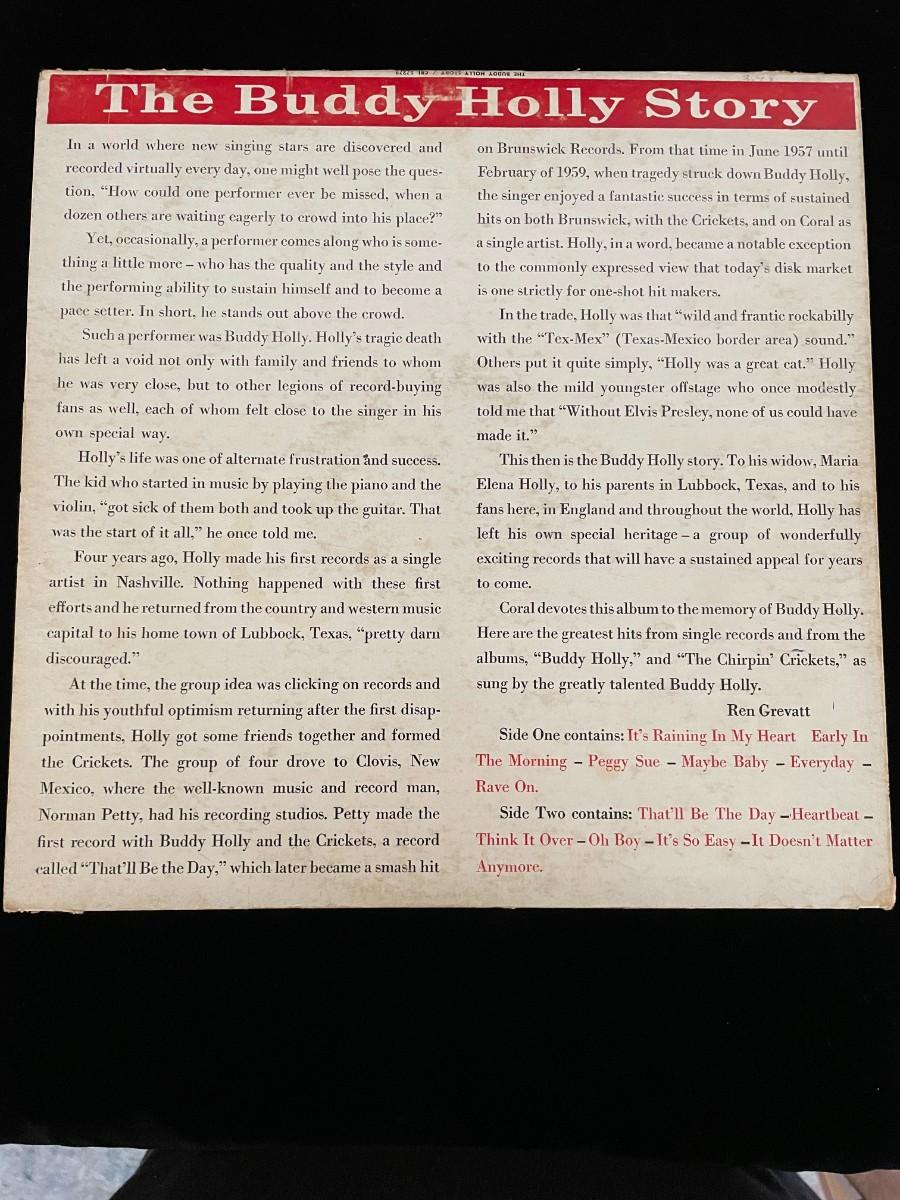 THE BUDDY HOLLY STORY / CRL 57279
The Buddy Holly Story
In a world where new singing stars are discovered and
recorded virtually every day, one might well pose the ques-
tion, “How could one performer ever be missed, when a
dozen others are waiting eagerly to crowd into his place?”
Yet, occasionally, a performer comes along who is some-
thing a little more – who has the quality and the style and
the performing ability to sustain himself and to become a
pace setter. In short, he stands out above the crowd.
Such a performer was Buddy Holly. Holly’s tragic death
has left a void not only with family and friends to whom
he was very close, but to other legions of record-buying
fans as well, each of whom felt close to the singer in his
own special way.
Holly’s life was one of alternate frustration and success.
The kid who started in music by playing the piano and the
violin, “got sick of them both and took up the guitar. That
was the start of it all,” he once told me.
Four years ago, Holly made his first records as a single
artist in Nashville. Nothing happened with these first
efforts and he returned from the country and western music
capital to his home town of Lubbock, Texas, “pretty darn
discouraged.”
At the time, the group idea was clicking on records and
with his youthful optimism returning after the first disap-
pointments, Holly got some friends together and formed
the Crickets. The group of four drove to Clovis, New
Mexico, where the well-known music and record man,
Norman Petty, had his recording studios. Petty made the
first record with Buddy Holly and the Crickets, a record
called “That’ll Be the Day,” which later became a smash hit
on Brunswick Records. From that time in June 1957 until
February of 1959, when tragedy struck down Buddy Holly,
the singer enjoyed a fantastic success in terms of sustained
hits on both Brunswick, with the Crickets, and on Coral as
a single artist. Holly, in a word, became a notable exception
to the commonly expressed view that today’s disk market
is one strictly for one-shot hit makers.
In the trade, Holly was that “wild and frantic rockabilly
with the “Tex-Mex” (Texas-Mexico border area) sound.”
Others put it quite simply, “Holly was a great cat.” Holly
was also the mild youngster offstage who once modestly
told me that “Without Elvis Presley, none of us could have
made it.”
This then is the Buddy Holly story. To his widow, Maria
Elena Holly, to his parents in Lubbock, Texas, and to his
fans here, in England and throughout the world, Holly has
left his own special heritage – a group of wonderfully
exciting records that will have a sustained appeal for years
to come.
Coral devotes this album to the memory of Buddy Holly.
Here are the greatest hits from single records and from the
albums, “Buddy Holly,” and “The Chirpin’ Crickets,” as
sung by the greatly talented Buddy Holly.
Ren Grevatt
Side One contains: It’s Raining In My Heart Early In
The Morning – Peggy Sue – Maybe Baby – Everyday –
Rave On.
Side Two contains: That’ll Be The Day – Heartbeat –
Think It Over – Oh Boy – It’s So Easy – It Doesn’t Matter
Anymore.